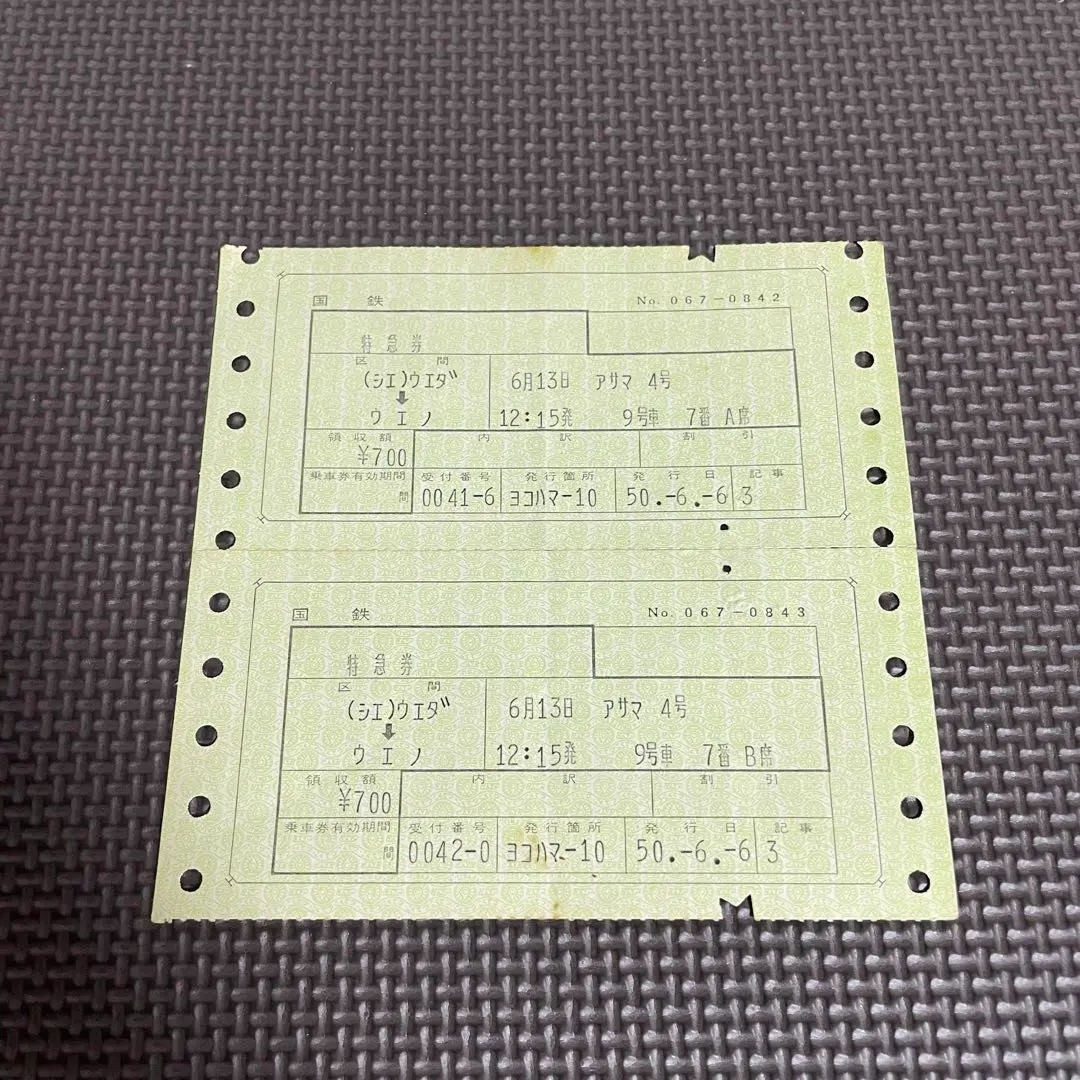 国鉄 No. 067-0842
特急券
区間
(シエ)ウエダ 6月13日 アサマ 4号
⬇
ウエノ 12:15発 9号車 7番 A席
領収額 内訳 割引
¥700
乗車券有効期間 受付番号 発行箇所 発行日 記事
間 0041-6 ヨコハマ-10 50.-6.-6 3
国鉄 No. 067-0843
特急券
区間
(シエ)ウエダ 6月13日 アサマ 4号
⬇
ウエノ 12:15発 9号車 7番 B席
領収額 内訳 割引
¥700
乗車券有効期間 受付番号 発行箇所 発行日 記事
間 0042-0 ヨコハマ-10 50.-6.-6 3